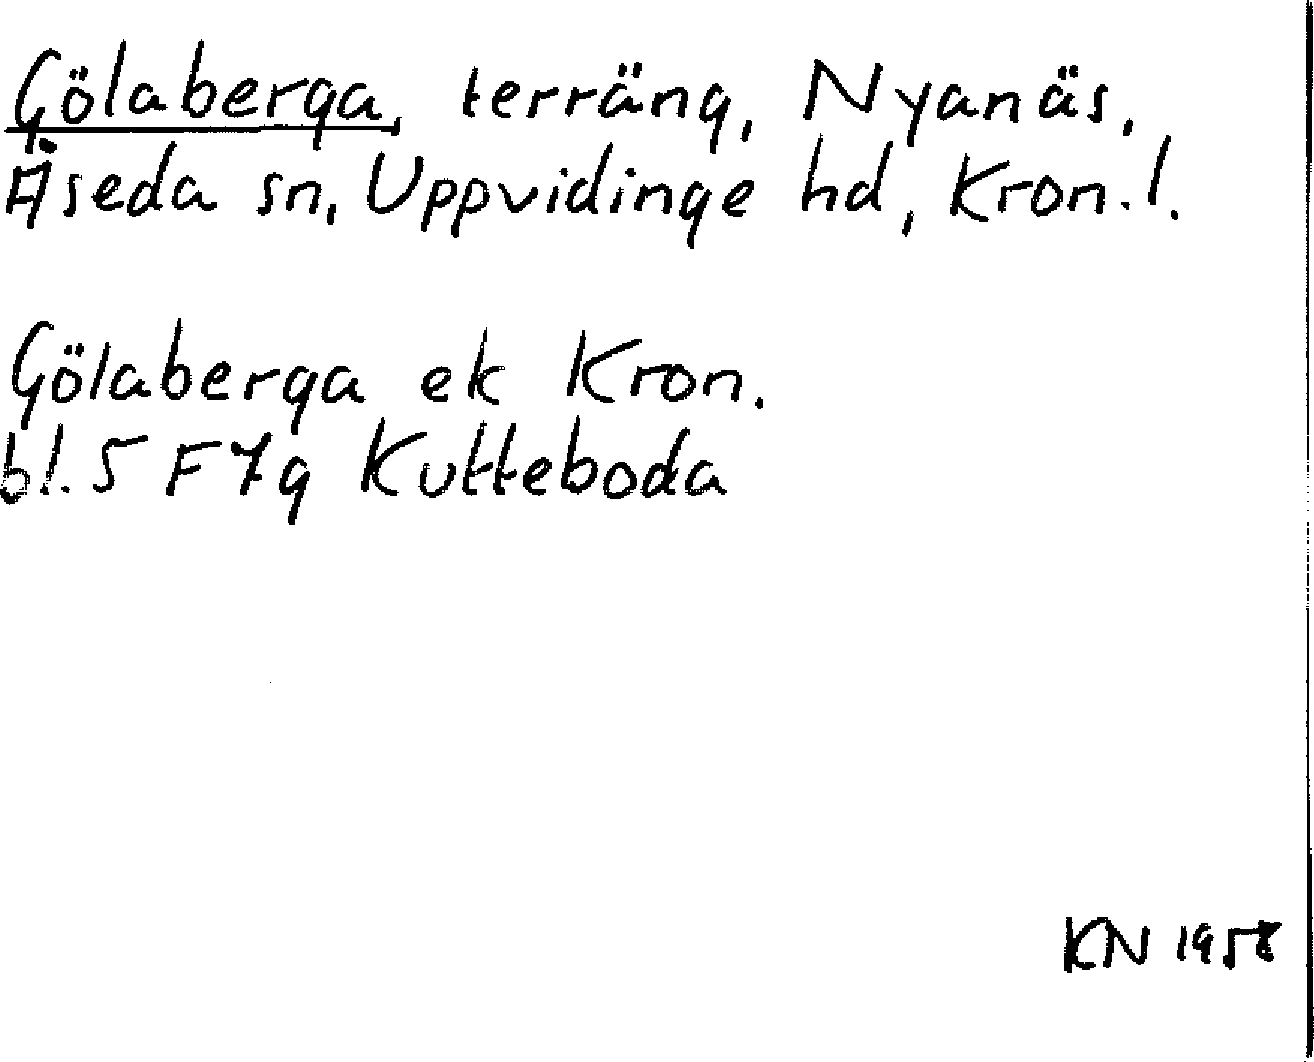 Gölaberga, terräng, Nyanäs,
Åseda sn, Uppvidinge hd, Kron. l.
Gölaberga ek Kron.
bl. 5 F 7g Kutteboda
KN 1958